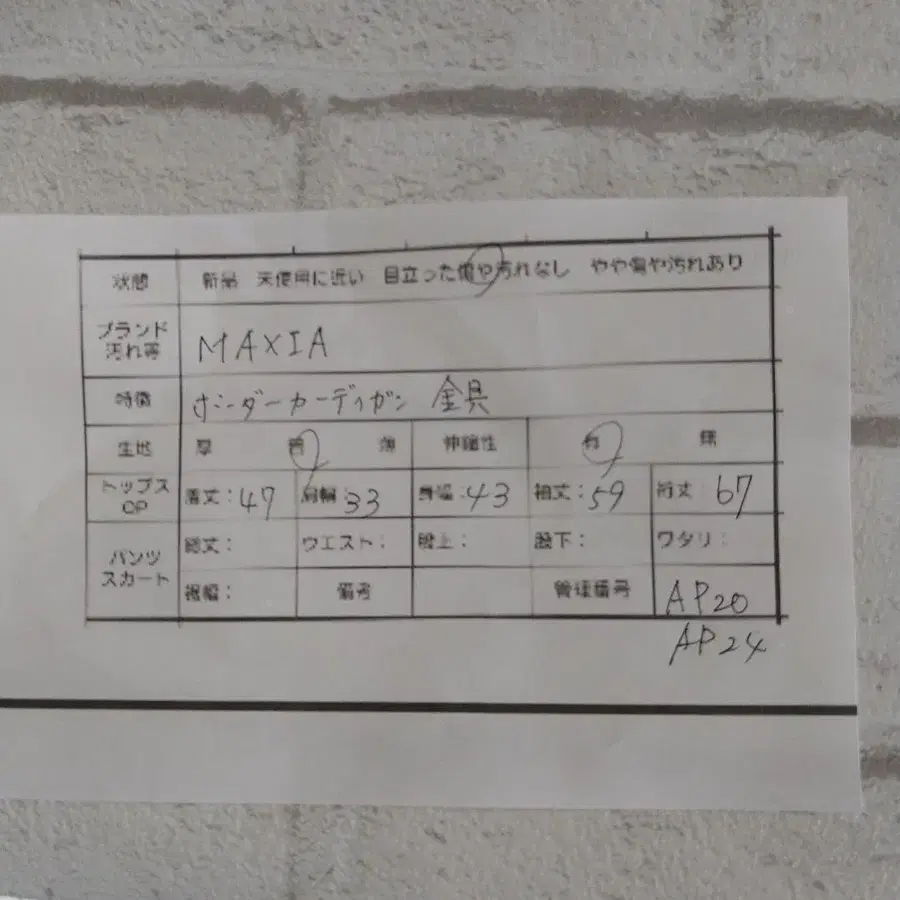 状態 新品 未使用に近い 目立った傷や汚れなし やや傷や汚れあり
ブランド
汚れ等 MAXIA
特徴 ボーダーカーディガン 金具
生地 厚 普 薄 伸縮性 有 無
トップス
OP 着丈:47 肩幅:33 身幅:43 袖丈:59 裄丈:67
パンツ
スカート 総丈: ウエスト: 股上: 股下: ワタリ:
裾幅: 備考 管理番号 AP20
AP24